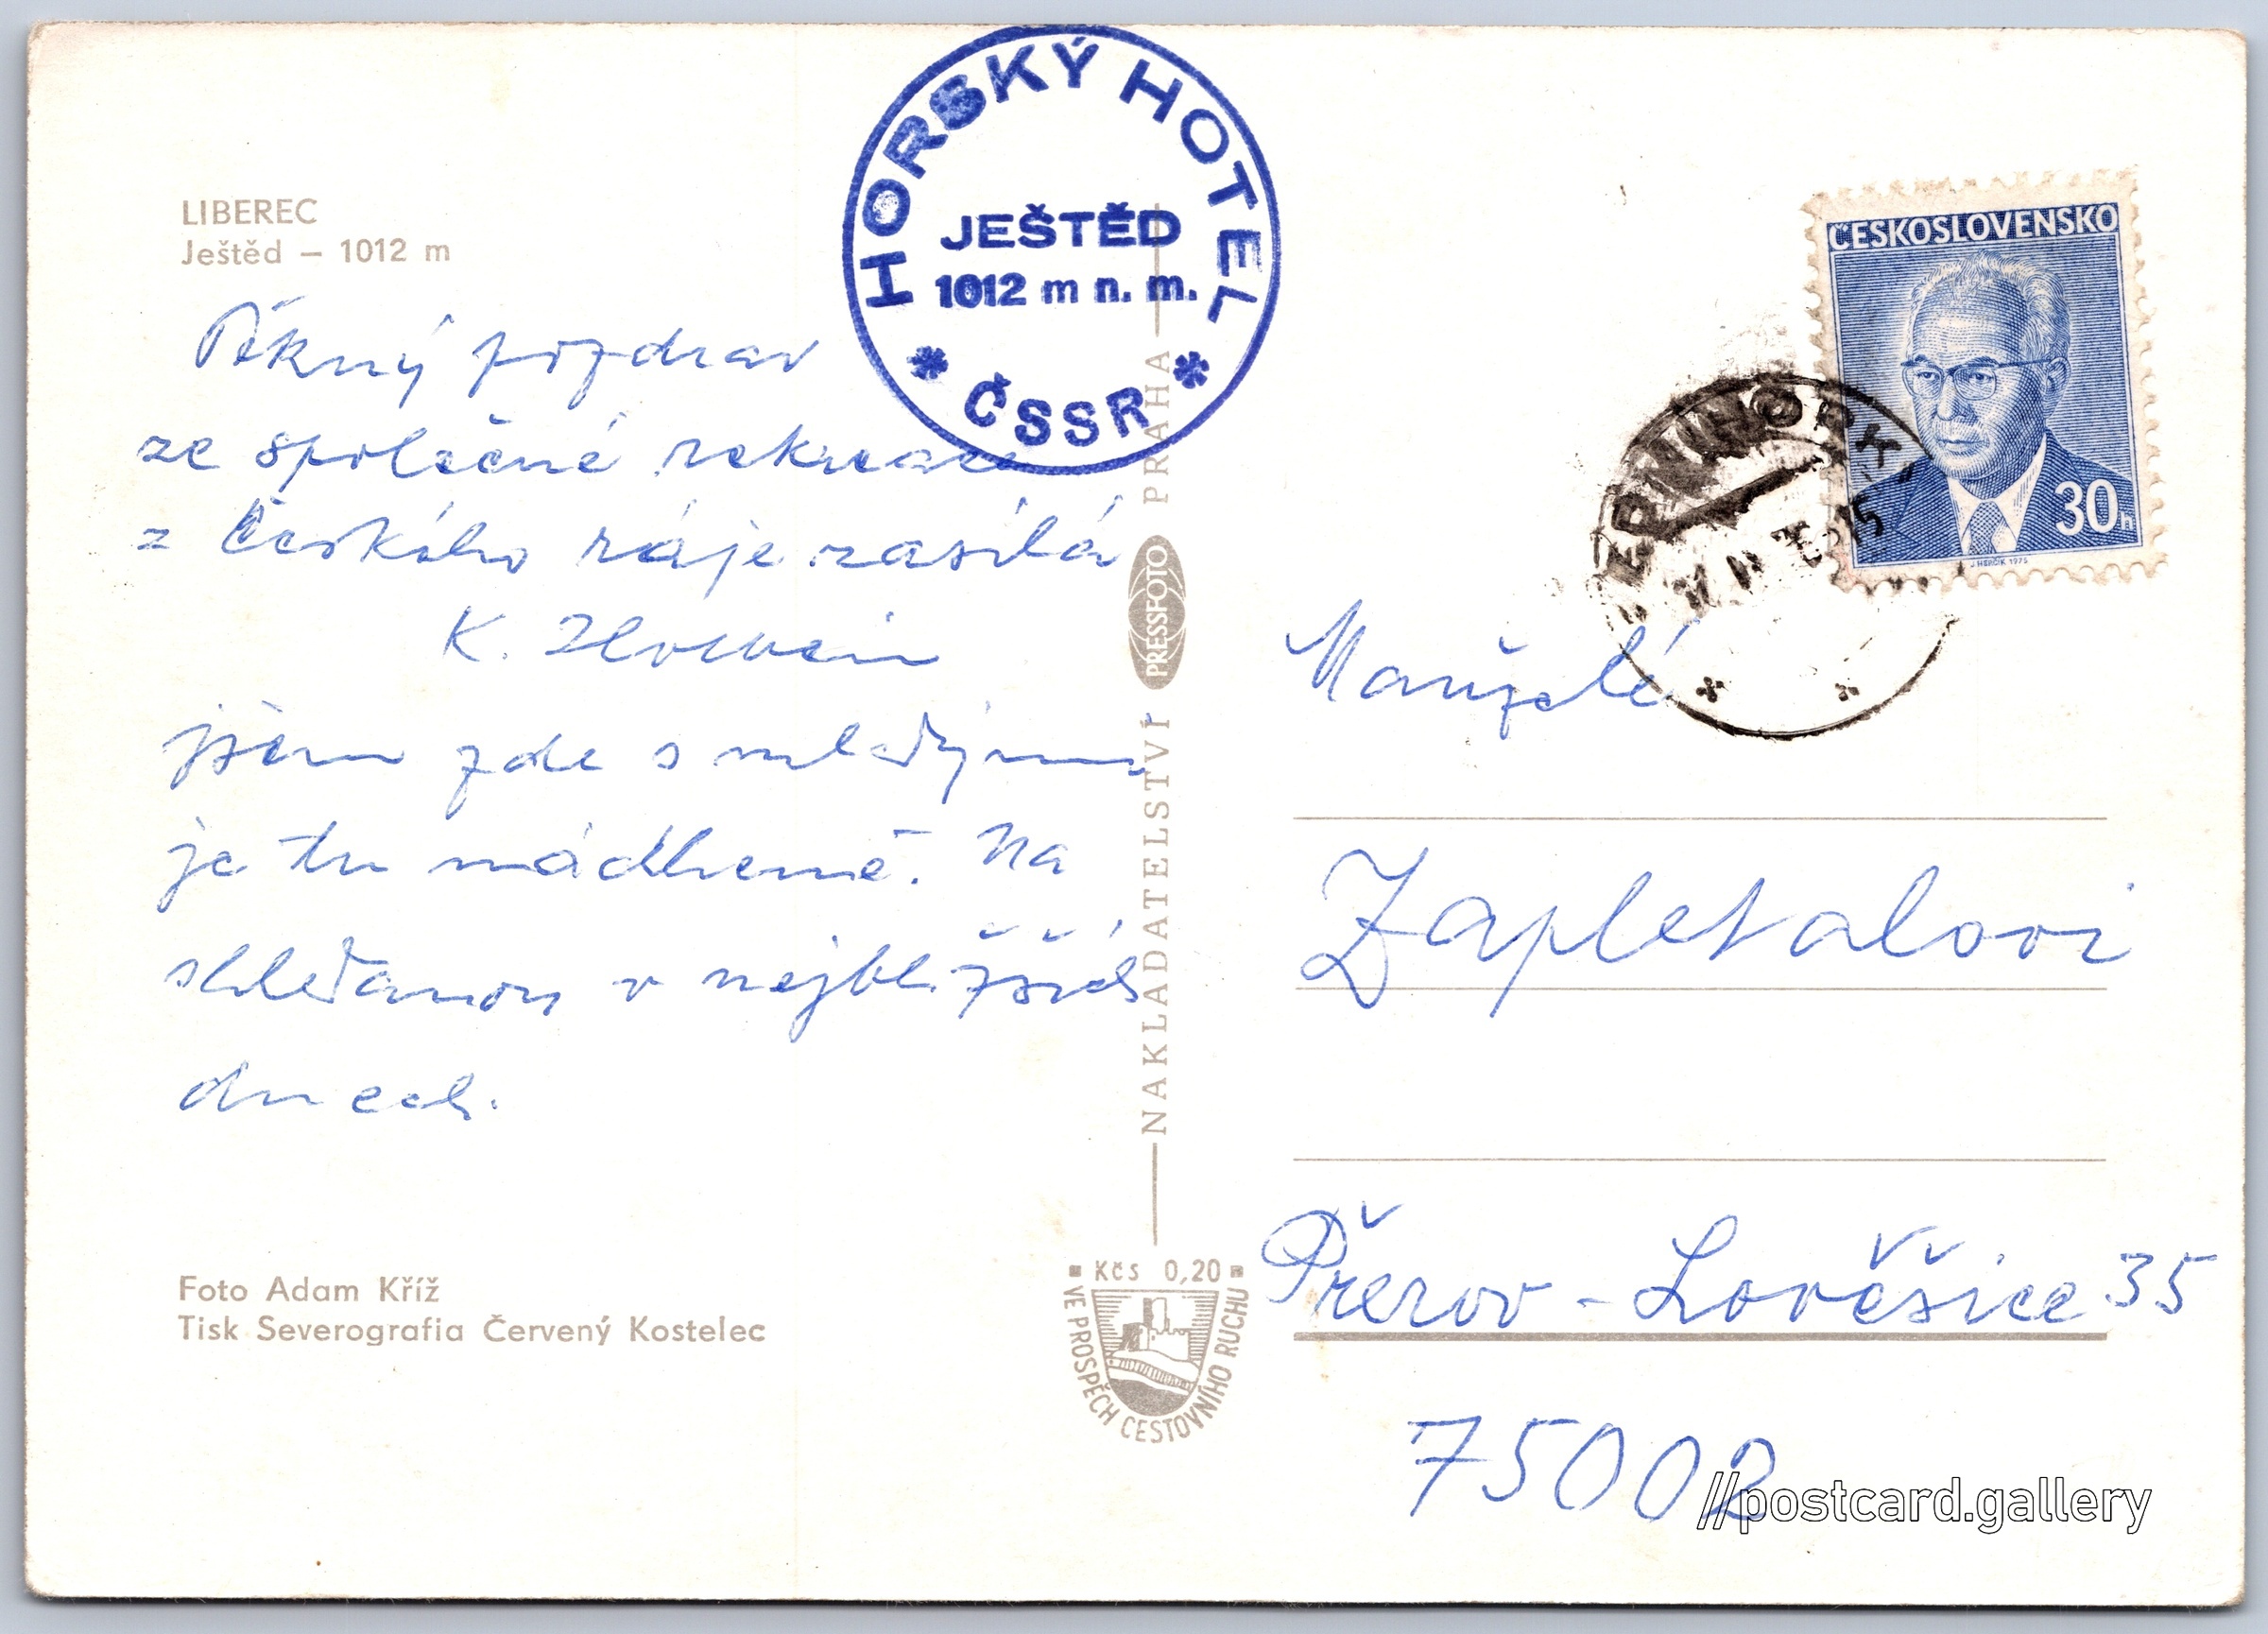 LIBEREC
Ještěd – 1012 m
HORSKÝ HOTEL
JEŠTĚD
1012 m n. m.
* ČSSR *
Pěkný pozdrav
ze společné rekreace
z Českého ráje zasílá
K.
jsem zde s mladými
je tu nádherně. Na
shledanou v nejbližších
dnech.
Foto Adam Kříž
Tisk Severografia Červený Kostelec
NAKLADATELSTVÍ PRESSFOTO PRAHA
Kčs 0,20
VE PROSPĚCH CESTOVNÍHO RUCHU
ČESKOSLOVENSKO
30h
J. HERČÍK 1975
Manželé
Zapletalovi
Přerov - Lověšice 35
75002
//postcard.gallery